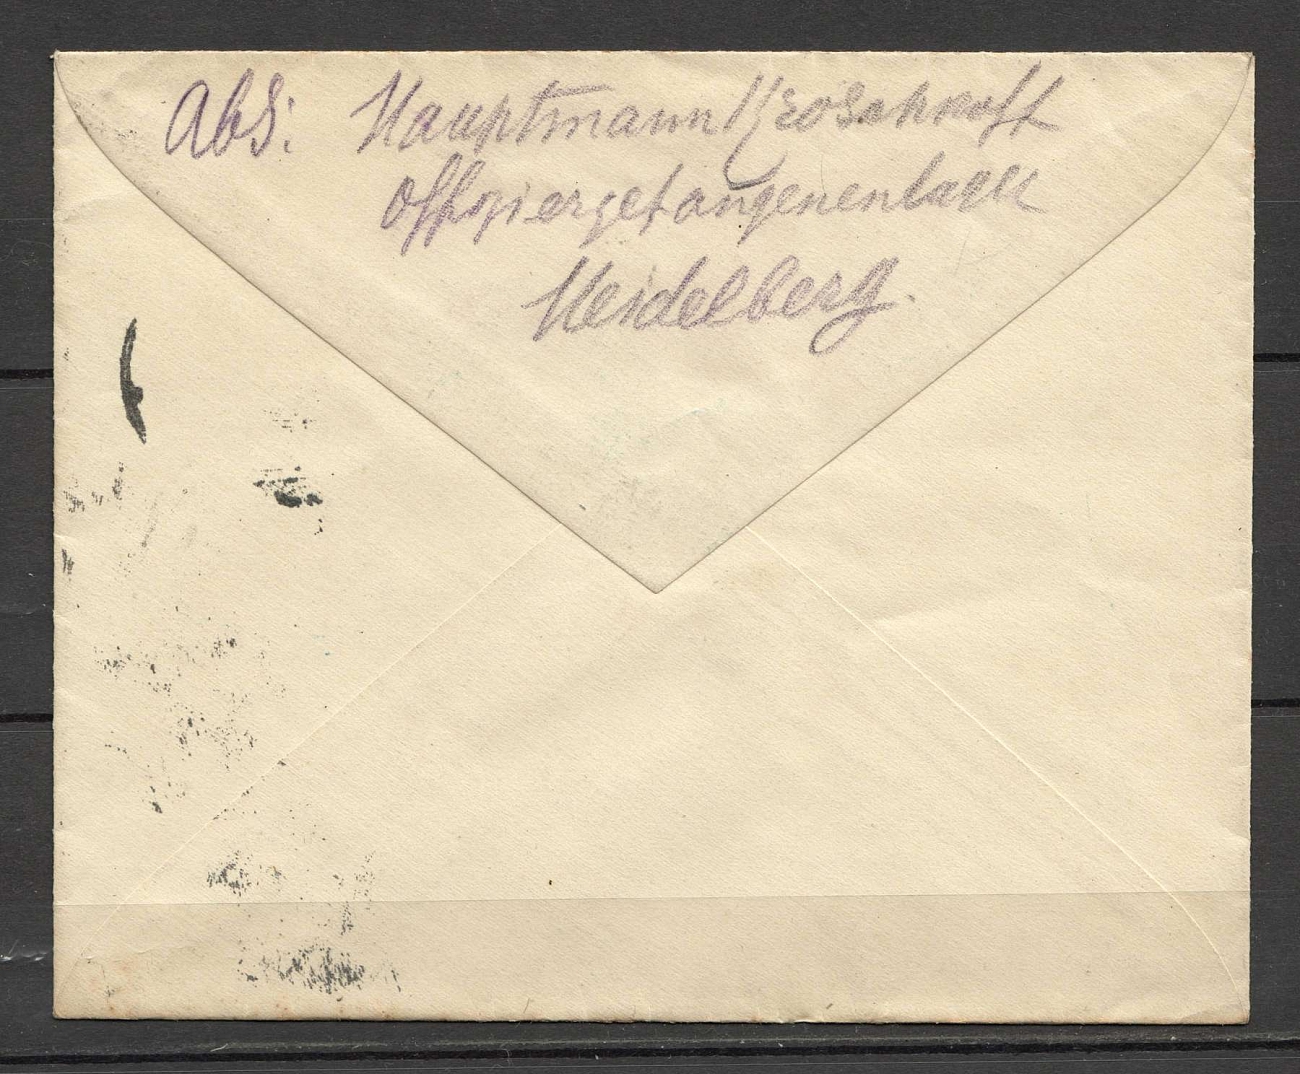 Abs: Hauptmann
Offiziergefangenenlager
Heidelberg.